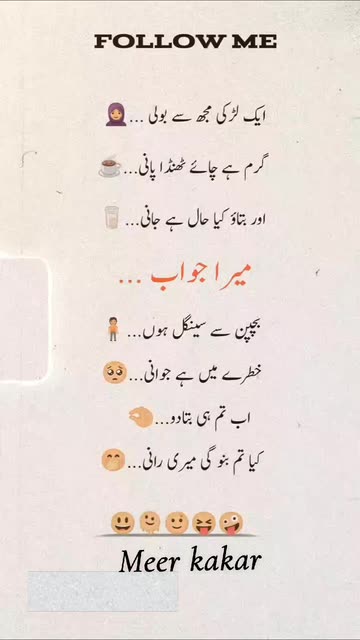 FOLLOW ME
ایک لڑکی مجھ سے بولی ... 🧕
گرم ہے چائے ٹھنڈا پانی... ☕
اور بتاؤ کیا حال ہے جانی... 🥛
میرا جواب ...
بچپن سے سینگل ہوں... 🧍
خطرے میں ہے جوانی... 🥺
اب تم ہی بتادو... 🤏
کیا تم بنو گی میری رانی... 🤭
😃🫠🙂😝🤪
Meer kakar